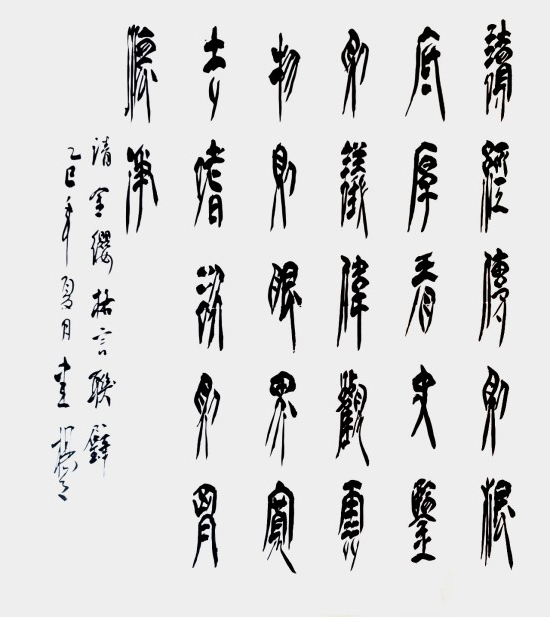 讀經傳則根
底厚看史鑒
則議偉觀雲
物則眼界寬
去嗜欲則胸
懷淨
清金纓格言聯璧
乙巳年夏月